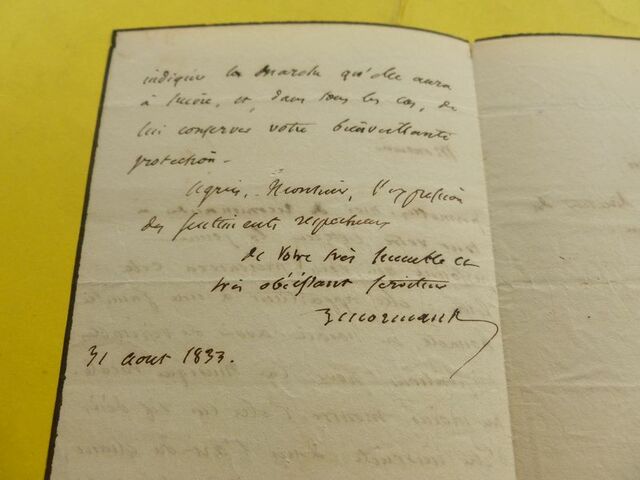 indiquer la marche qu'elle aura
à suivre, et, dans tous les cas, de
lui conserver votre bienveillante
protection.
Agréez, Monsieur, l'expression
des sentiments respectueux
de Votre très humble et
très obéissant serviteur
31 aout 1833.